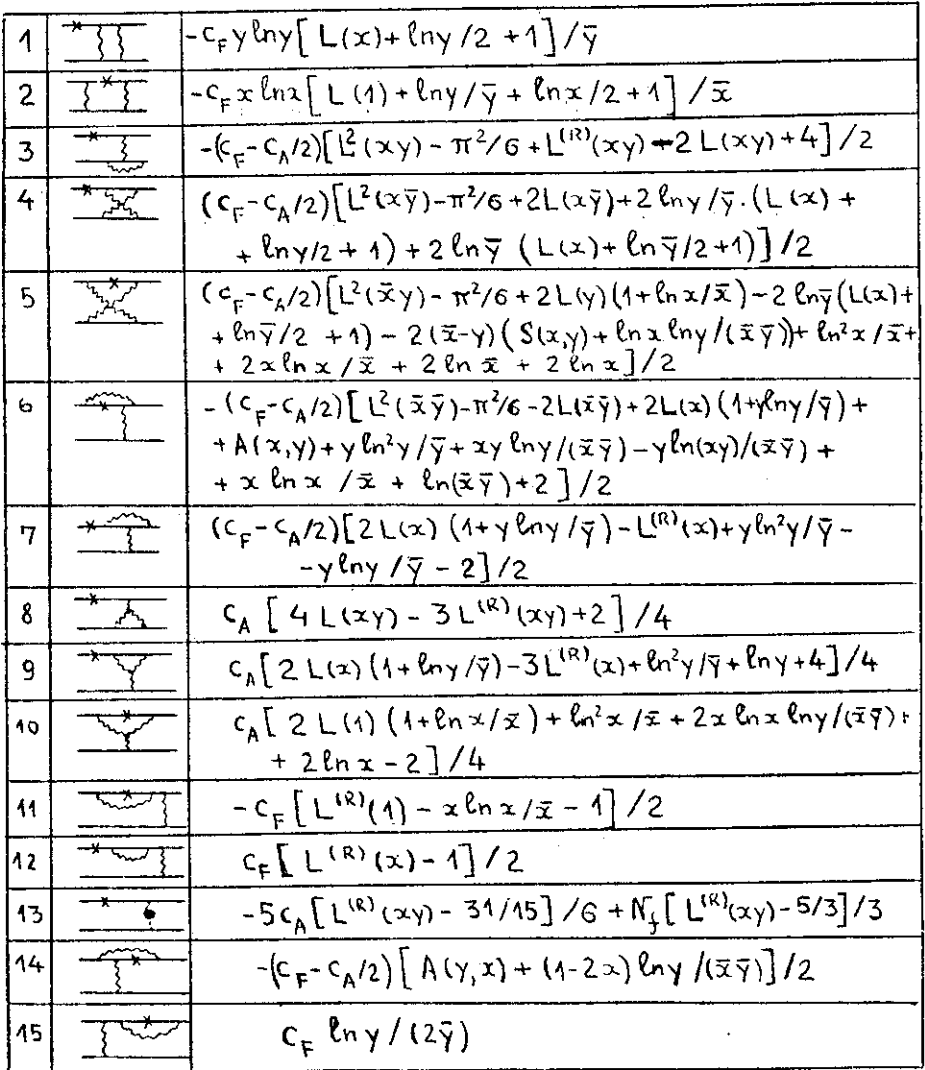 1 -C_F y ln y [ L(x) + ln y /2 + 1 ] / ȳ
2 -C_F x ln x [ L(1) + ln y / ȳ + ln x /2 + 1 ] / x̄
3 -(C_F - C_A/2) [ L²(xy) - π²/6 + L^(R)(xy) - 2 L(xy) + 4 ] /2
4 (C_F - C_A/2) [ L²(xȳ) - π²/6 + 2L(xȳ) + 2 ln y / ȳ · (L(x) +
+ ln y/2 + 1) + 2 ln ȳ (L(x) + ln ȳ/2 + 1) ] /2
5 (C_F - C_A/2) [ L²(x̄y) - π²/6 + 2L(y)(1 + ln x/x̄) - 2 ln ȳ (L(x) +
+ ln ȳ/2 + 1) - 2(x̄-y)(S(x,y) + ln x ln y /(x̄ȳ)) + ln²x / x̄ +
+ 2x ln x / x̄ + 2 ln x̄ + 2 ln x ] /2
6 -(C_F - C_A/2) [ L²(x̄ȳ) - π²/6 - 2L(x̄ȳ) + 2L(x)(1 + y ln y/ȳ) +
+ A(x,y) + y ln²y / ȳ + xy ln y /(x̄ȳ) - y ln(xy)/(x̄ȳ) +
+ x ln x / x̄ + ln(x̄ȳ) + 2 ] /2
7 (C_F - C_A/2) [ 2L(x)(1 + y ln y / ȳ) - L^(R)(x) + y ln²y / ȳ -
- y ln y / ȳ - 2 ] /2
8 C_A [ 4 L(xy) - 3 L^(R)(xy) + 2 ] /4
9 C_A [ 2 L(x)(1 + ln y/ȳ) - 3 L^(R)(x) + ln²y/ȳ + ln y + 4 ] /4
10 C_A [ 2 L(1)(1 + ln x / x̄) + ln²x / x̄ + 2x ln x ln y /(x̄ȳ) +
+ 2 ln x - 2 ] /4
11 -C_F [ L^(R)(1) - x ln x / x̄ - 1 ] /2
12 C_F [ L^(R)(x) - 1 ] /2
13 -5C_A [ L^(R)(xy) - 31/15 ] /6 + N_f [ L^(R)(xy) - 5/3 ] /3
14 -(C_F - C_A/2) [ A(y,x) + (1-2x) ln y /(x̄ȳ) ] /2
15 C_F ln y / (2ȳ)